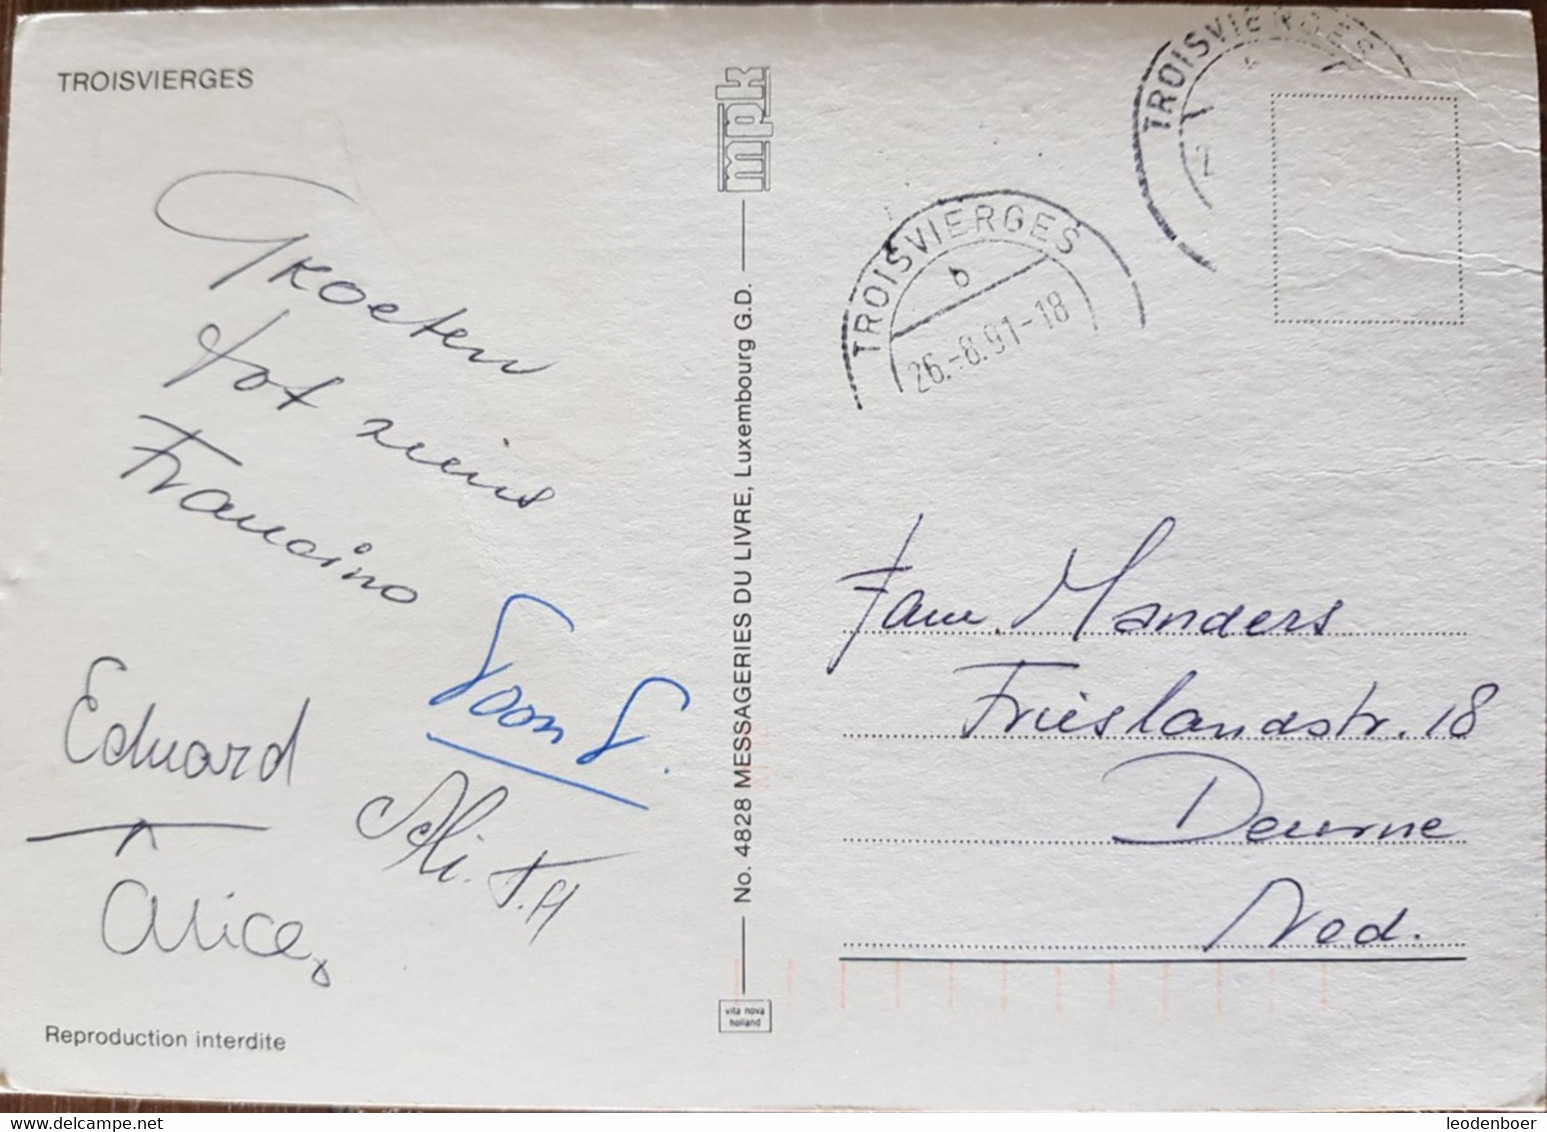 TROISVIERGES
Groeten
tot ziens
Francino
Toon S.
Eduard
Ali. T.H
Alice
Reproduction interdite
mpk
No. 4828 MESSAGERIES DU LIVRE, Luxembourg G.D.
vita nova
holland
TROISVIERGES
TROISVIERGES
b
26.-8.91-18
Fam. Manders
Frieslandstr. 18
Deurne
Ned.
leodenboer